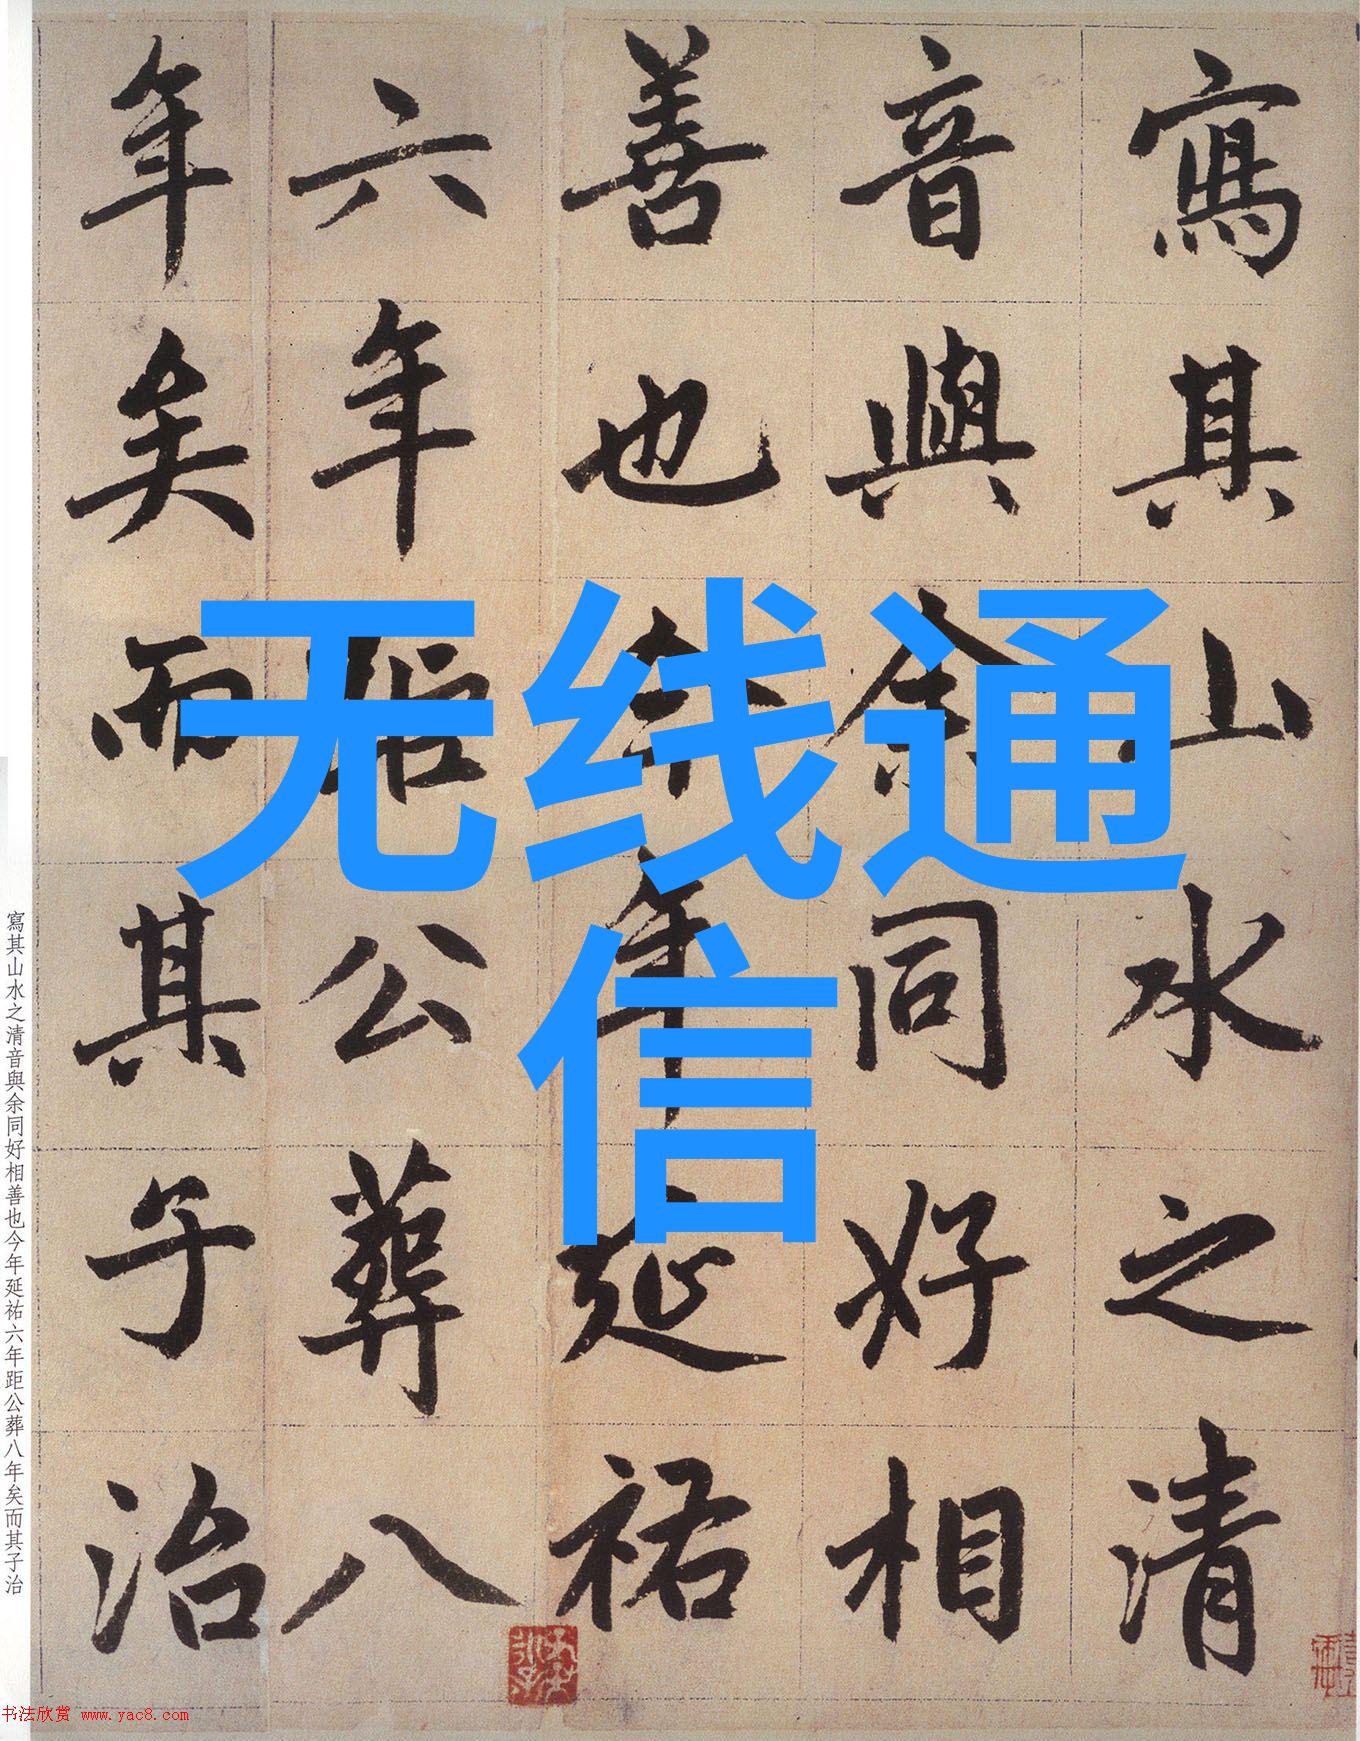 寫其山水之清
音與余同好相
善也今年延祐
六年距公葬八
年矣而其子治
无线通
信
寫其山水之清音與余同好相善也今年延祐六年距公葬八年矣而其子治
书法欣赏 www.yac8.com